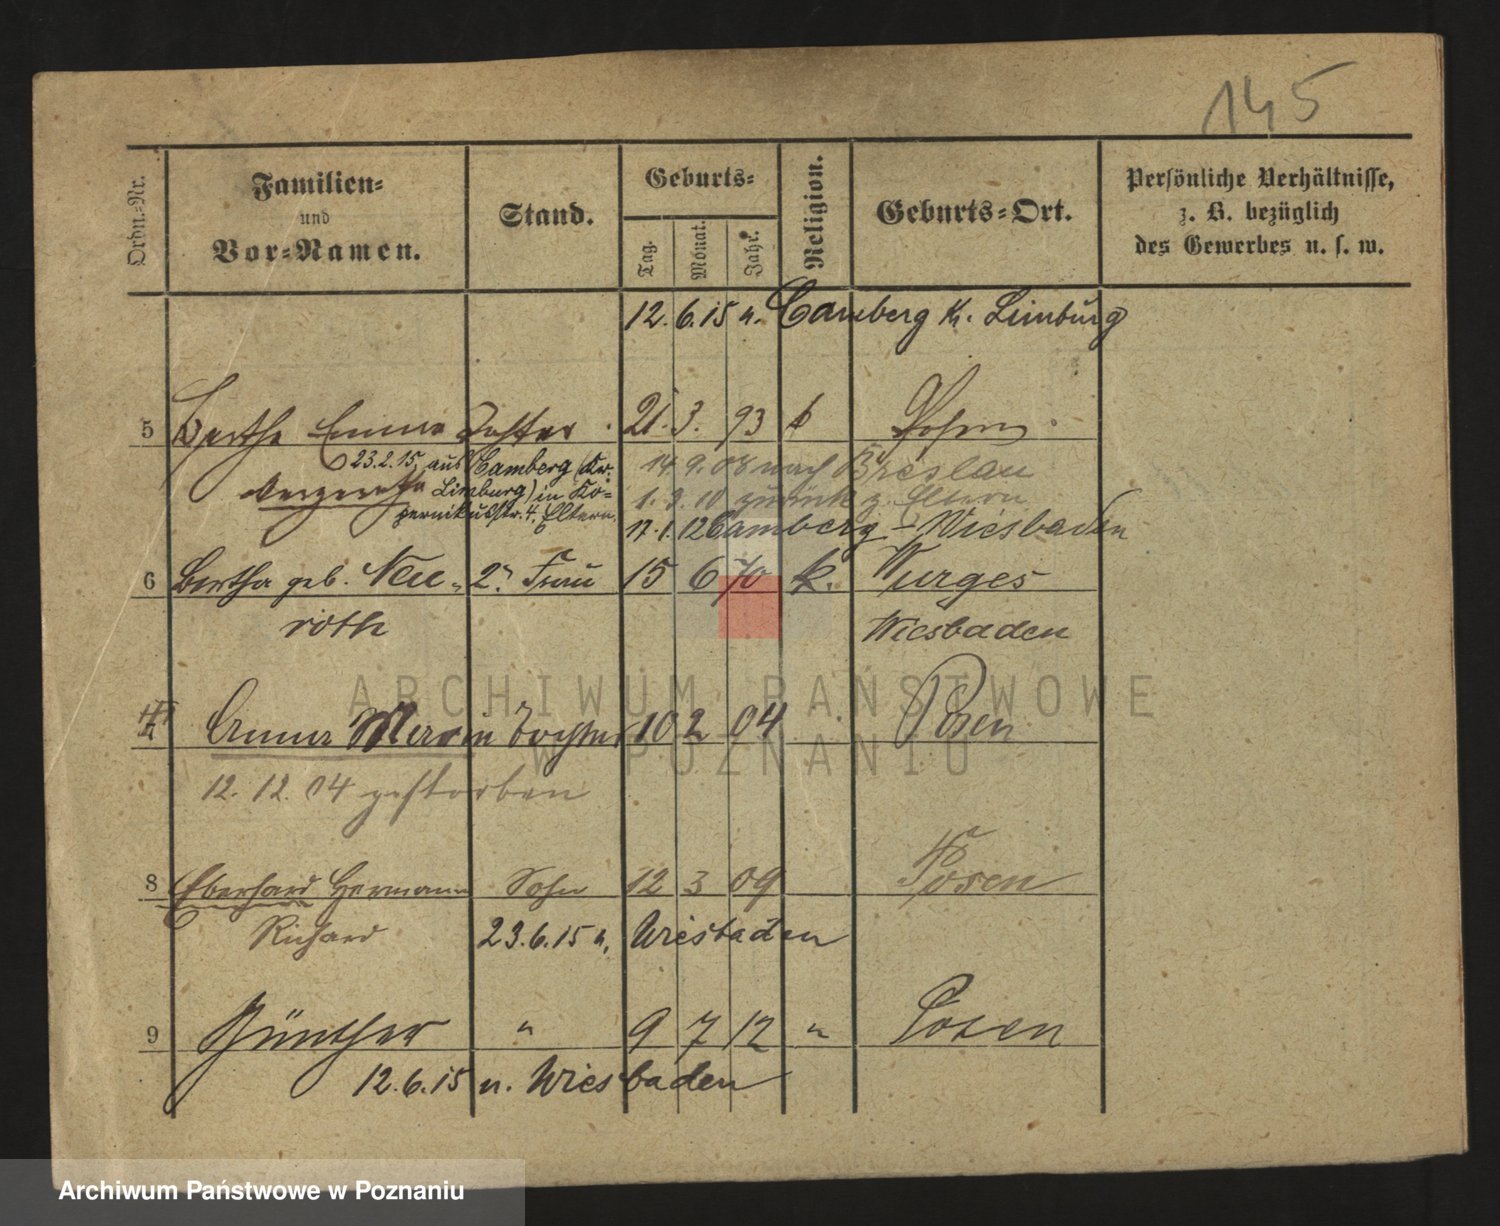 145
Ordn.-Nr.
Familien-
und
Vor-Namen.
Stand.
Geburts-
Tag.
Monat.
Jahr.
Religion.
Geburts-Ort.
Persönliche Verhältnisse,
z. B. bezüglich
des Gewerbes u. s. w.
12. 6. 15 n. Camberg Kr. Limburg
5 Herthe Emma Tochter 21. 3. 93 k Posen
23.2.15. aus Camberg (Kr.
Limburg) in Ko=
pernikusstr. 4, Eltern.
Margarethe
14. 9. 08 nach Breslau
1. 9. 10 zurück z. Eltern
17. 1. 12 Camberg - Wiesbaden
6 Bertha geb. Neu- 2. Frau 15 6 70 k. Würges
roth Wiesbaden
Anna Marie Tochter 10 2 04 Posen
12. 12. 04 gestorben
8 Eberhard Hermann Sohn 12 3 09 Posen
Richard 23.6.15 n. Wiesbaden
9 Günther " 9 7 12 " Posen
12.6.15 n. Wiesbaden
ARCHIWUM PAŃSTWOWE
W POZNANIU
Archiwum Państwowe w Poznaniu